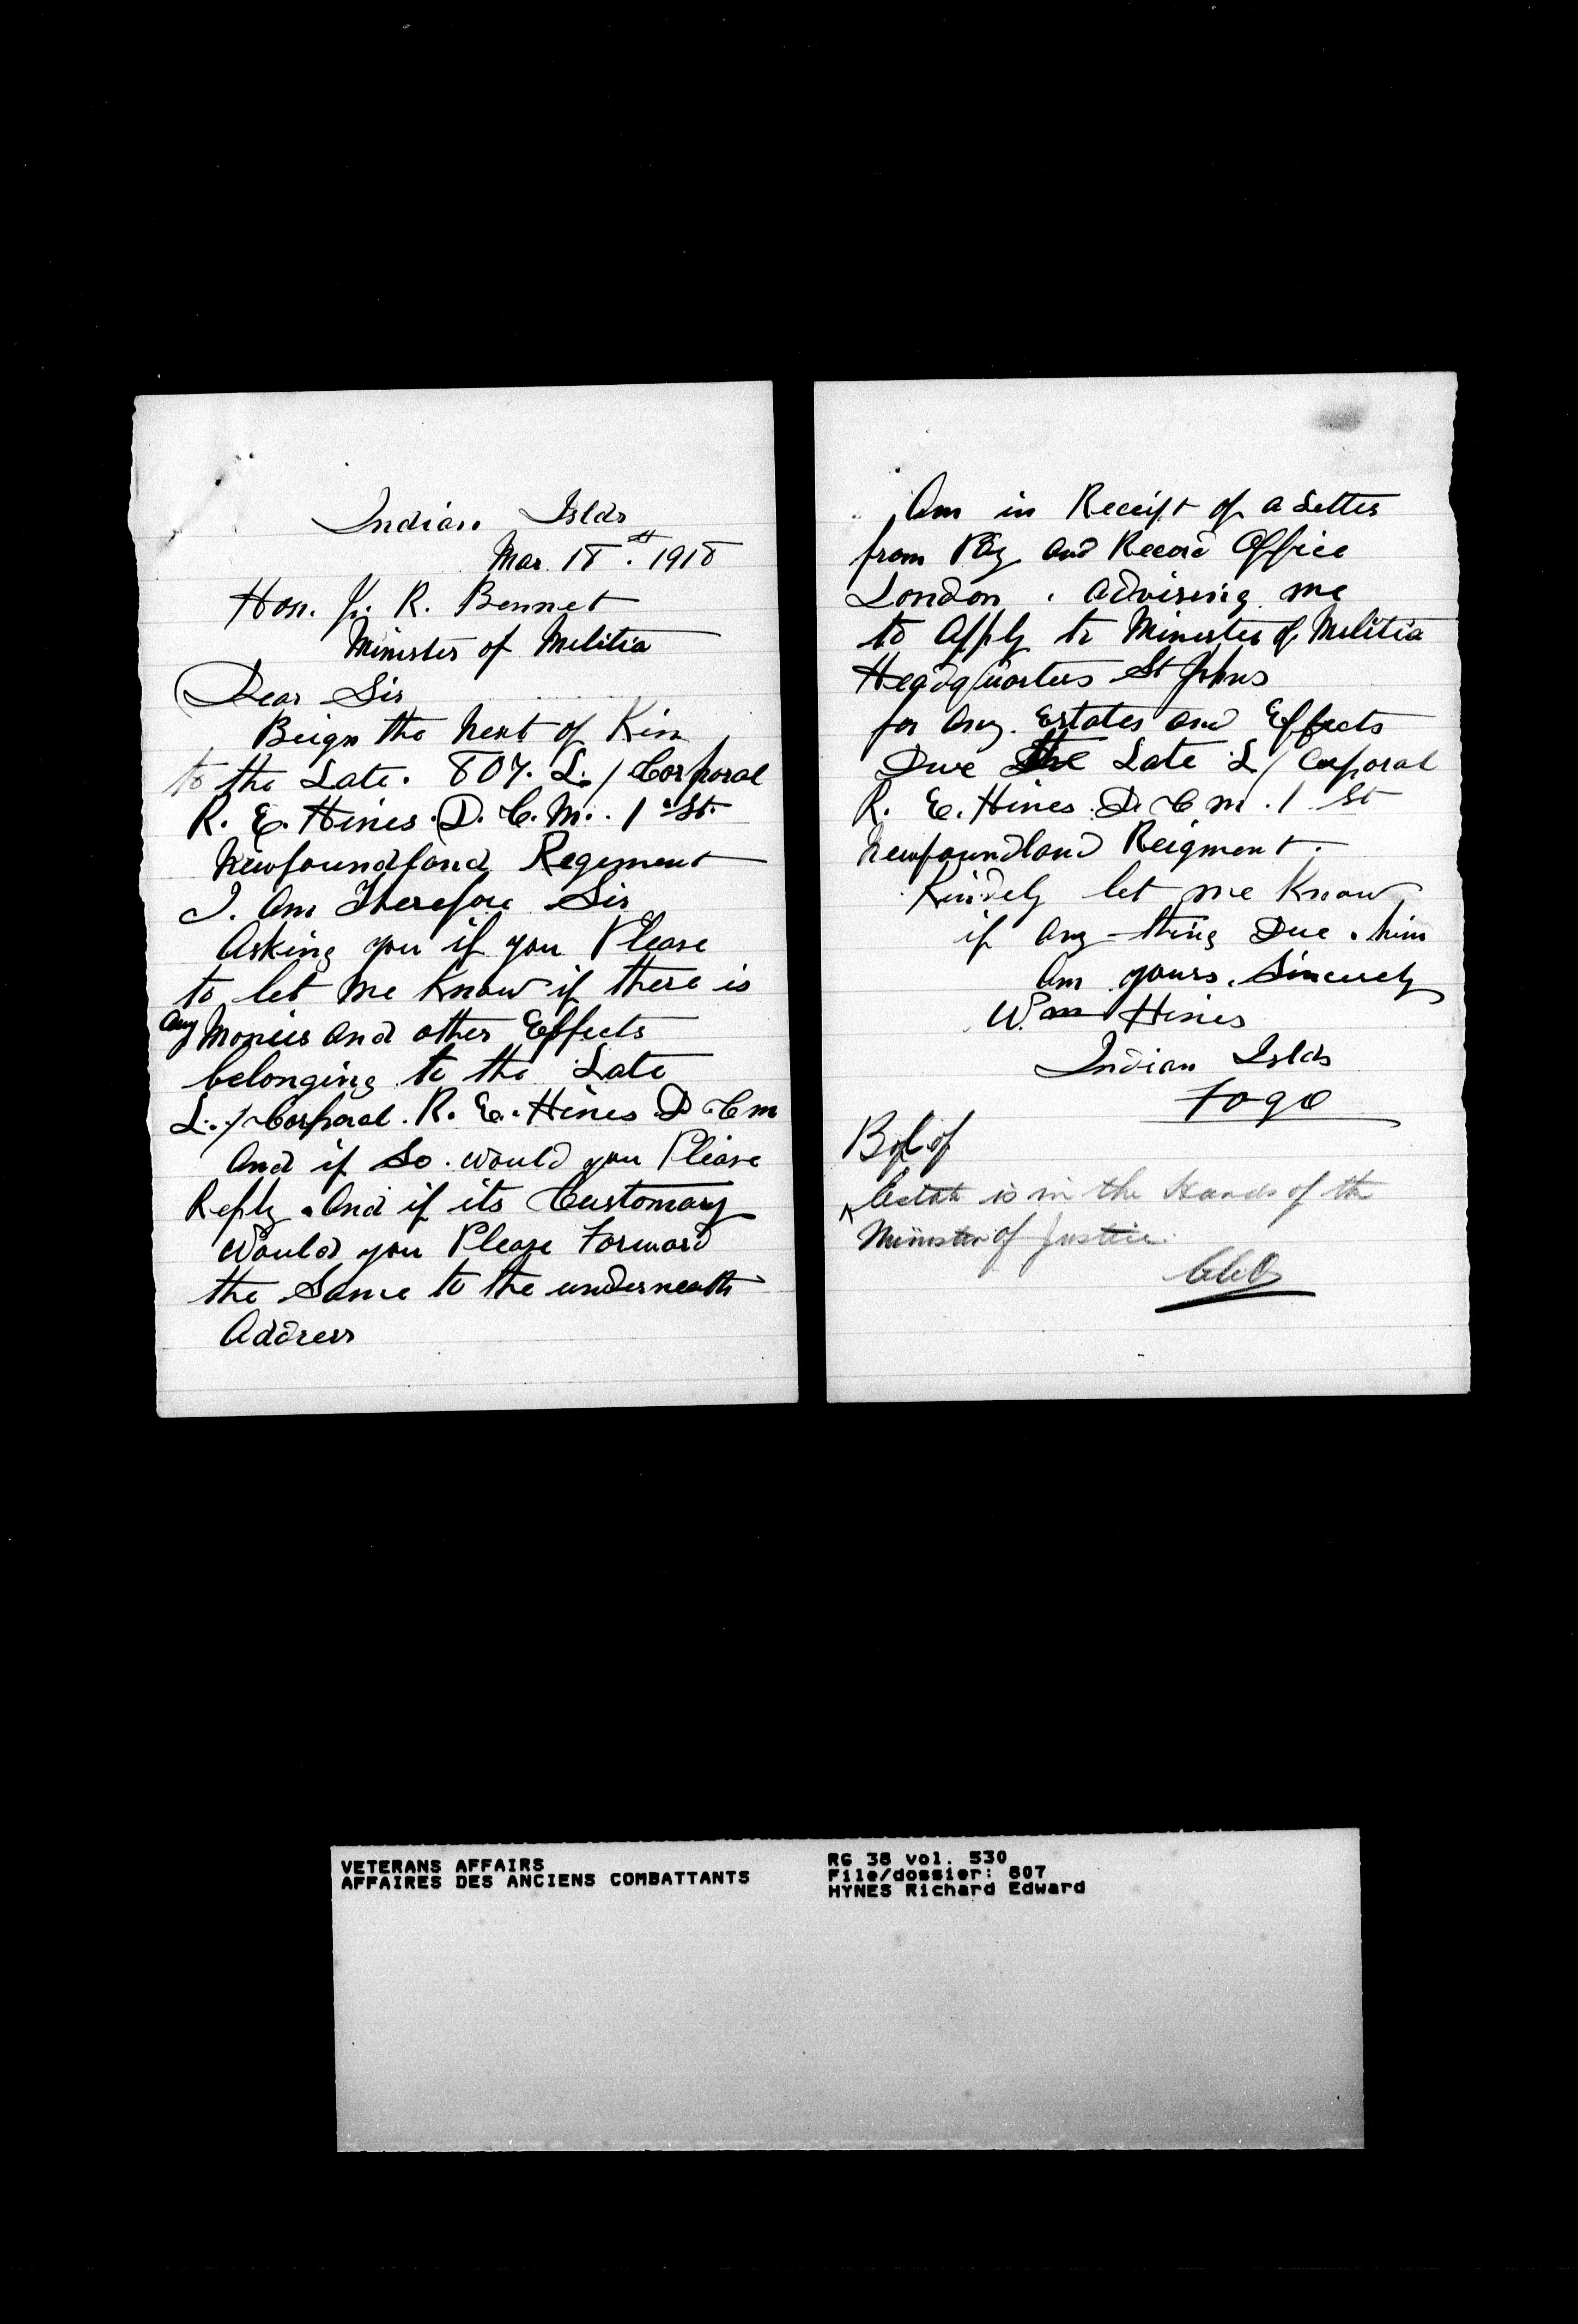 Indian Islds
Mar 18th. 1918
Hon. J. R. Bennet
Minister of Militia
Dear Sir
Beign the Next of Kin
to the Late. 807. L./ Corporal
R. E. Hines. D. C. M. . 1 st.
Newfoundland Regiment
I. Am Therefore Sir
Asking you if you Please
to let me Know if there is
any Monies and other Effects
belonging to the Late
L./Corporal. R. E. Hines D. C m
And if So. would you Please
Reply. And if its Customary
Would you Please Forward
the Same to the underneath
Address
Am in Receipt of a Letter
from Pay and Record Office
London. advising me
to Apply to Minister of Militia
Headquarters St Johns
for Any. Estates and Effects
Due the Late L/ Corporal
R. E. Hines. D. C m. 1 St
Newfoundland Reigment.
Kindely let me Know
if Any-thing Due. him
Am yours. Sincerely
Wm Hines
Indian Islds
Fogo
Estate is in the Hands of the
Minister of Justice.
VETERANS AFFAIRS
AFFAIRES DES ANCIENS COMBATTANTS
RG 38 vol. 530
File/dossier: 807
HYNES Richard Edward